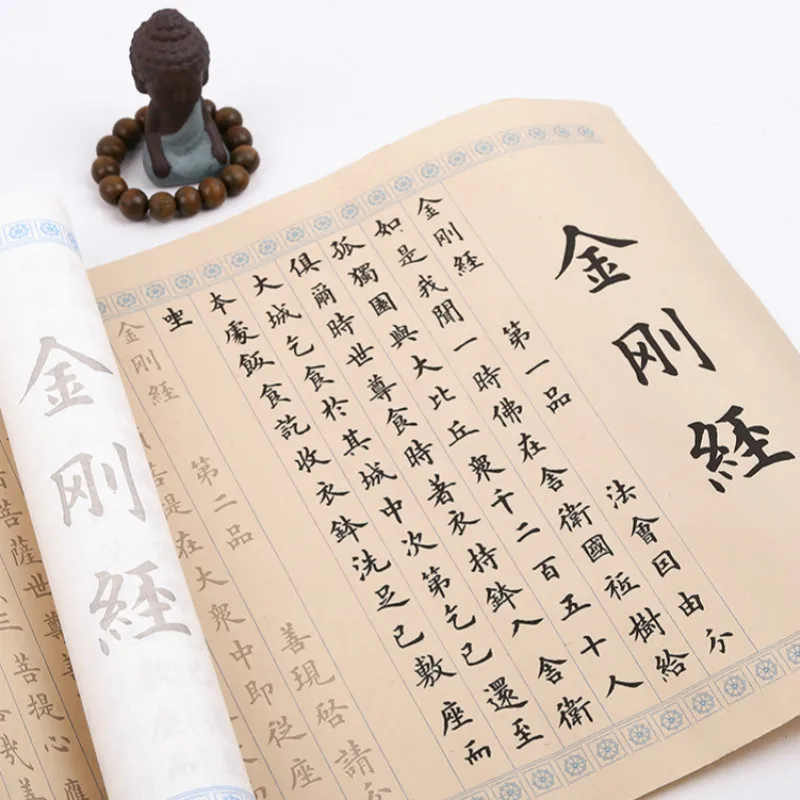 金刚經
金刚經 第一品 法會囙由分
如是我聞一時佛在舍衛國祇樹給
孤獨園與大比丘眾千二百五十人
俱爾時世尊食時著衣持鉢入舍衛
大城乞食於其城中次第乞已還至
本處飯食訖收衣鉢洗足已敷座而
坐
金刚經 第二品 善現啓請分
須菩提在大眾中即從座
金刚經
菩薩世尊善
三菩提心應
哉善